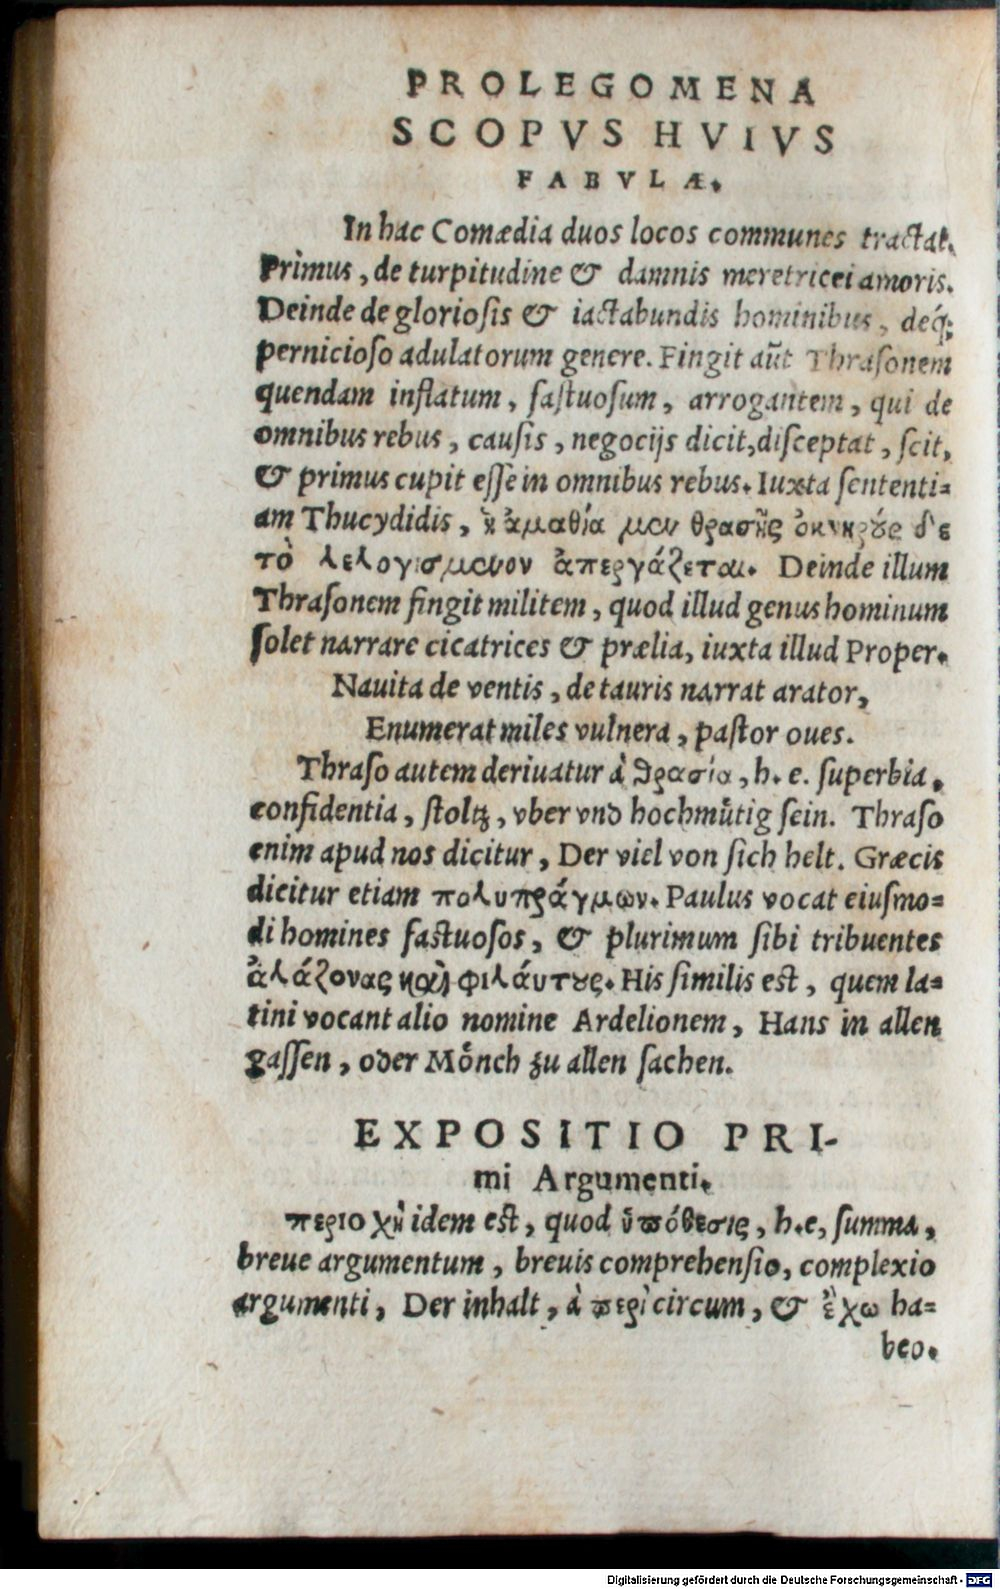 PROLEGOMENA
SCOPVS HVIVS
FABVLÆ.
In hac Comædia duos locos communes tractat.
Primus, de turpitudine & damnis meretricei amoris.
Deinde de gloriosis & iactabundis hominibus, deq́;
pernicioso adulatorum genere. Fingit aūt Thrasonem
quendam inflatum, fastuosum, arrogantem, qui de
omnibus rebus, causis, negocijs dicit, disceptat, scit,
& primus cupit esse in omnibus rebus. Iuxta sententi=
am Thucydidis, ἡ ἀμαθία μὲν θρασεῖς ὀκνηρούς δ'ε
τὸ λελογισμένον ἀπεργάζεται. Deinde illum
Thrasonem fingit militem, quod illud genus hominum
solet narrare cicatrices & prælia, iuxta illud Proper.
Nauita de ventis, de tauris narrat arator,
Enumerat miles vulnera, pastor oues.
Thraso autem deriuatur à θρασία, h. e. superbia,
confidentia, stoltz, vber vnd hochmůtig sein. Thraso
enim apud nos dicitur, Der viel von sich helt. Græcis
dicitur etiam πολυπράγμων. Paulus vocat eiusmo=
di homines fastuosos, & plurimum sibi tribuentes
ἀλάζονας καὶ φιλάυτους. His similis est, quem la=
tini vocant alio nomine Ardelionem, Hans in allen
gassen, oder Mônch zu allen sachen.
EXPOSITIO PRI-
mi Argumenti.
περιοχὴ idem est, quod ὑπόθεσις, h.e, summa,
breue argumentum, breuis comprehensio, complexio
argumenti, Der inhalt, à περὶ circum, & ἔχω ha=
beo.
Digitalisierung gefördert durch die Deutsche Forschungsgemeinschaft - DFG